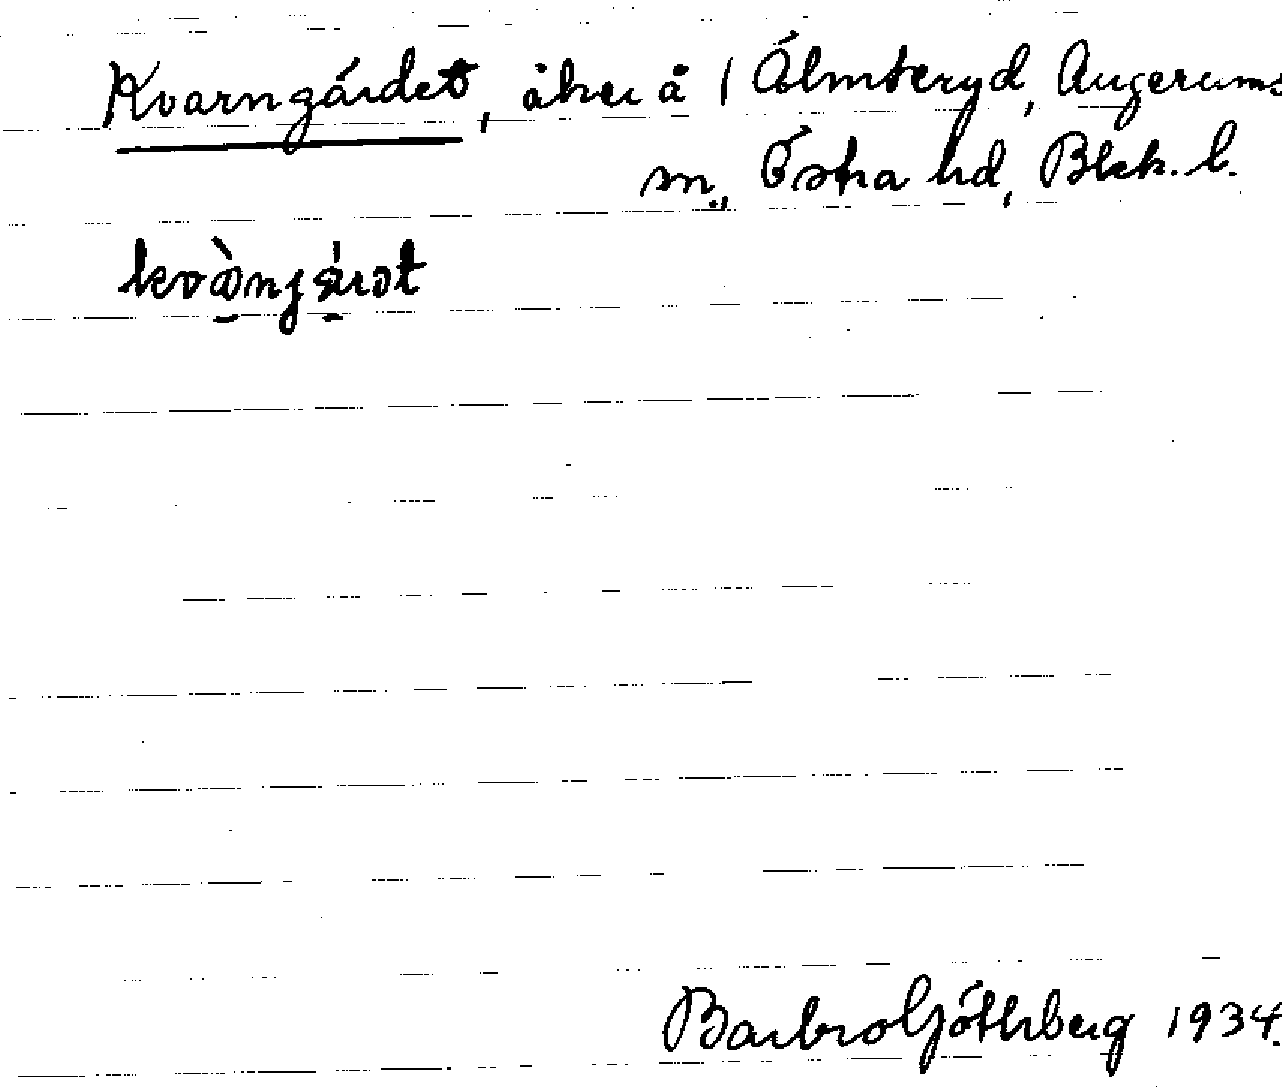 Kvarngärdet, åker å 1 Älmteryd, Augerums
sn., Östra hd, Blek. l.
Barbro Göthberg 1934.